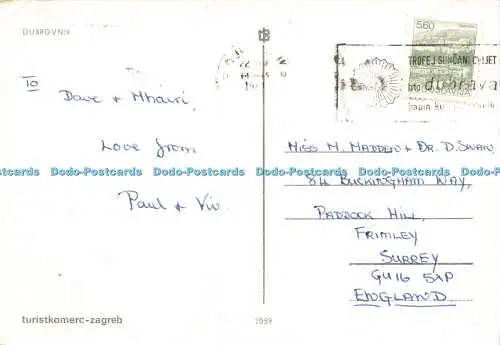 DUBROVNIK
TO
Dave & Mhairi,
Love from
Paul & Viv.
turistkomerc-zagreb
5.60
TROFEJ SUNČANI CVIJET
MISS M. MADDEN & DR. D. SWAN,
84 BUCKINGHAM WAY,
PADDOCK HILL,
FRIMLEY
SURREY
GU16 5XP
ENGLAND.
Dodo-Postcards Dodo-Postcards Dodo-Postcards Dodo-Postcards Dodo-Postcards